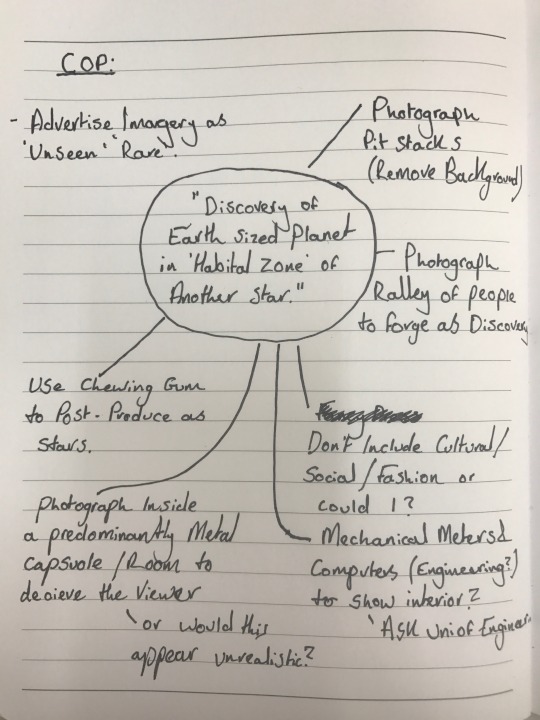 COP:
- Advertise Imagery as
'Unseen' 'Rare'.
Photograph
Pit Stacks
(Remove Background)
"Discovery of
Earth Sized Planet
in 'Habital Zone' of
Another Star."
Photograph
Ralley of people
to forge as Discovery
Use Chewing Gum
to Post-Produce as
Stars.
Don't Include Cultural/
Social/Fashion or
could I?
Photograph Inside
a predominantly Metal
capsuole/Room to
decieve the Viewer
'or would this
appear unrealistic?
Mechanical Meters &
Computers (Engineering?)
to show interior?
'Ask Uni of Engineer